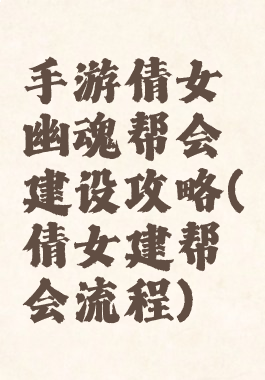 手游倩女
幽魂帮会
建设攻略(
倩女建帮
会流程)